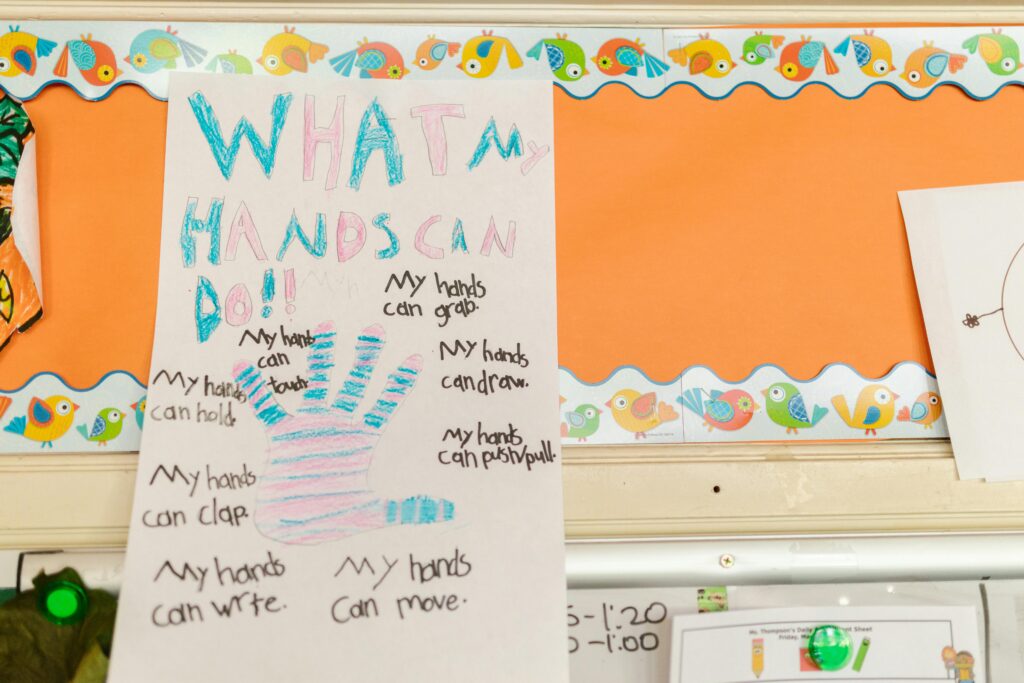 WHAT My
HANDS CAN
DO!!
My hands
can grab.
My hands
can
touch.
My hands
can draw.
My hands
can hold.
My hands
can push/pull.
My hands
can clap.
My hands
can write.
My hands
can move.
-1:20
-1:00
Ms. Thompson's Daily
Sheet
Friday,